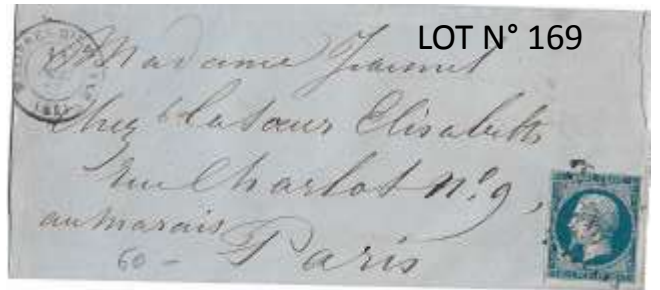 LOT N° 169
Madame
chez la sœur Elisabeth
rue Charlot n° 9,
au marais
Paris
60 -